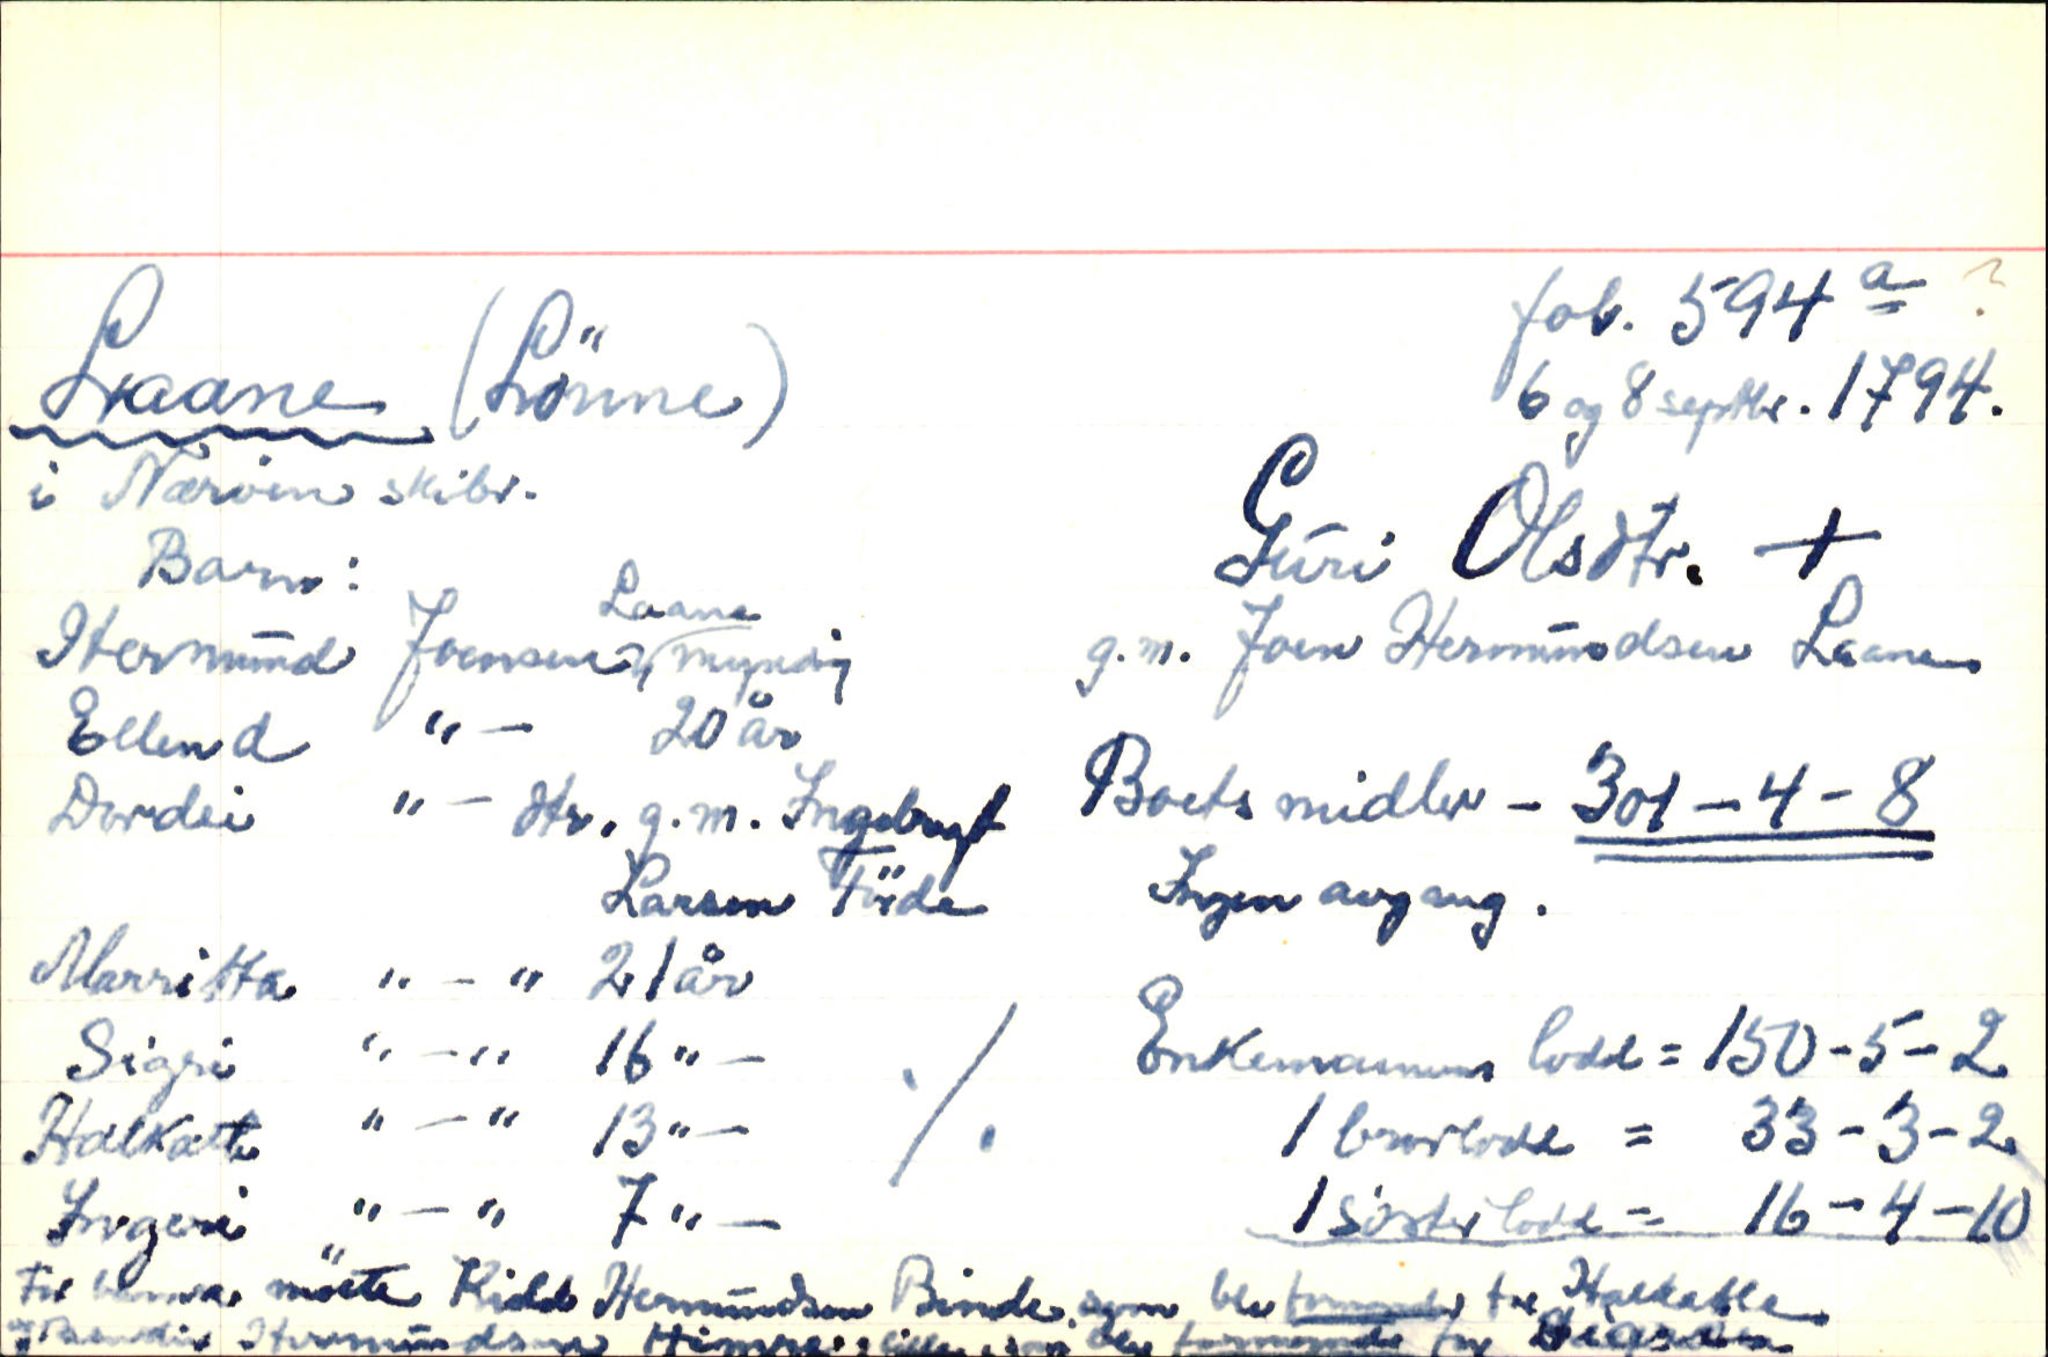 fol. 594 a ?
Laane (Lönne)
6 og 8 septbr. 1794.
i Nærvin skibr.
Guri Olsdtr. +
g.m. Joen Hermundsen Laane
Barn:
Laane
Hermund Joensen, myndig
Ellend "— 20 år
Dordei "— dtr. g.m. Ingebrigt
Larsen Förde
Marritta " — " 21 år
Sigri " — " 16 " —
Halkatt " — " 13 " —
Ingeri " — " 7 " —
./.
Boets midler – 301 – 4 – 8
Ingen avgang.
Enkemannens lodd = 150 – 5 – 2
1 brorlodd = 33 – 3 – 2
1 sösterlodd = 16 – 4 – 10
For barna mötte Kield Hermundsen Binde, som ble formynder for Halkatte
Hermundsen som ble formynder for